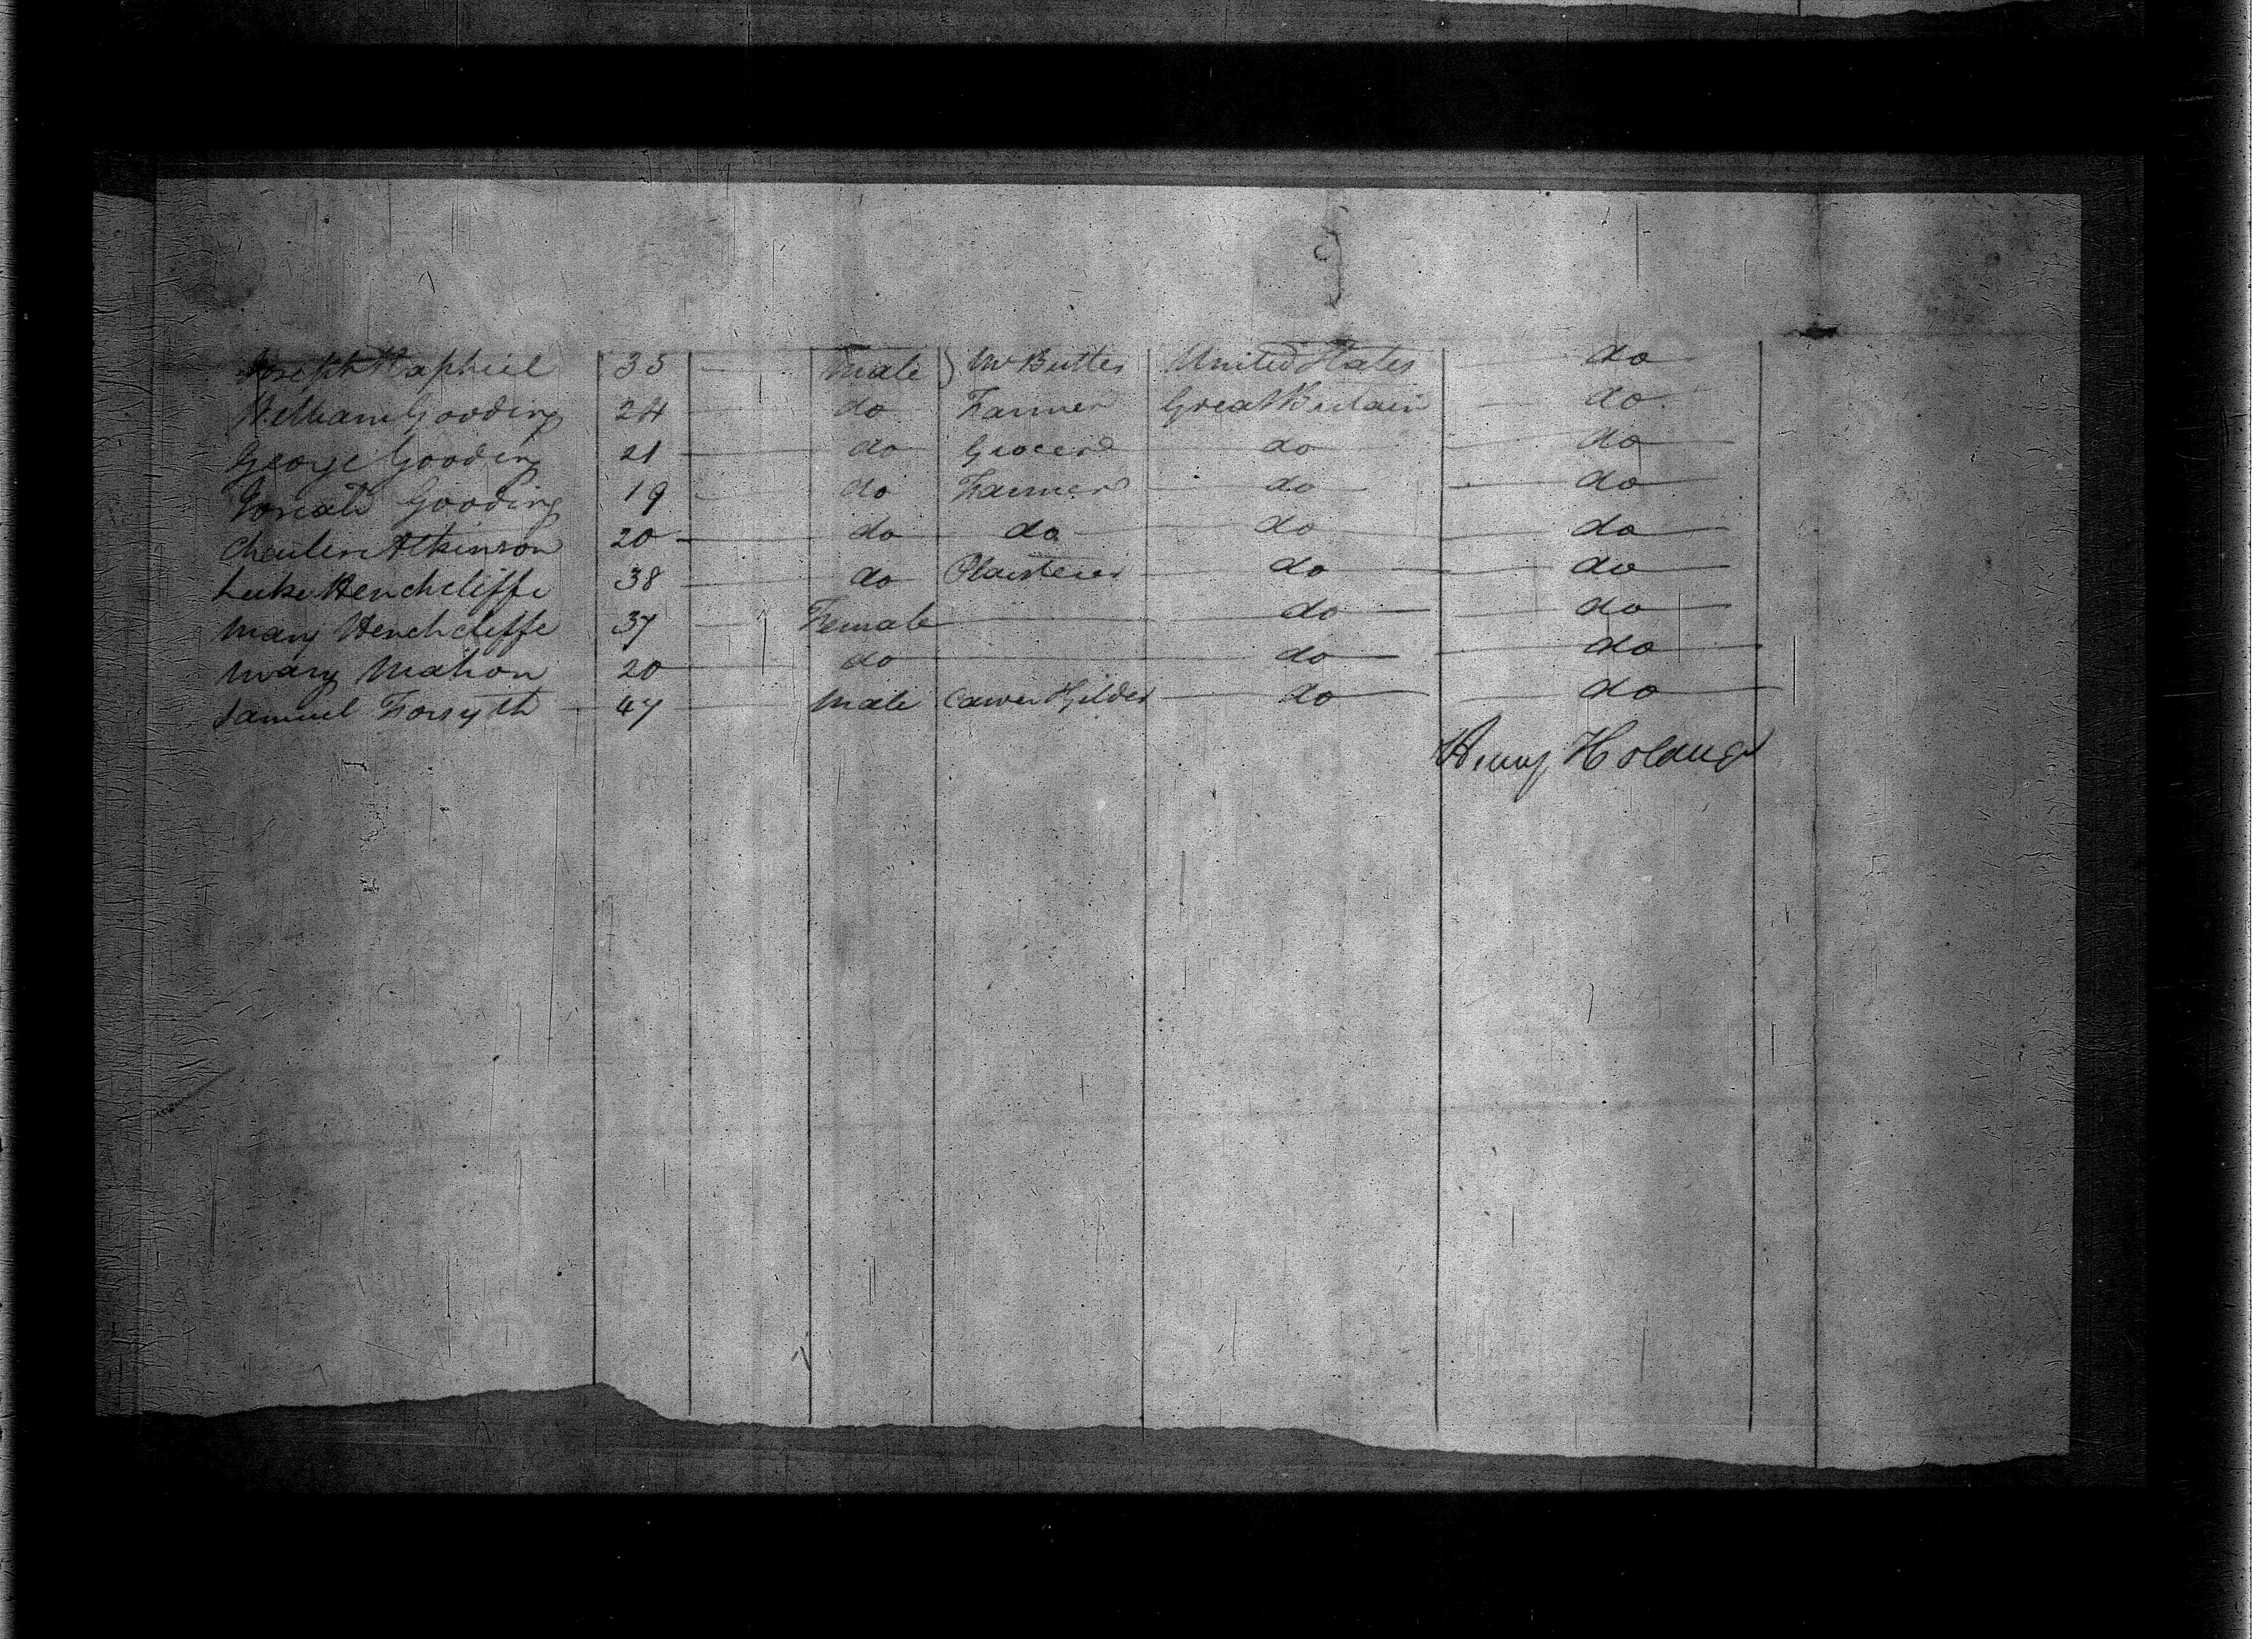 Joseph Raphiel 35 male United States do
William Gooding 24 do Farmer Great Britain do
George Gooding 21 do Grocer do do
Josiah Gooding 19 do Farmer do do
Charles Atkinson 20 do do do do
Luke Henchcliffe 38 do Plaisterer do do
Mary Henchcliffe 37 Female do do
Mary Mahon 20 do do do
Samuel Forsyth 47 Male Carver Gilder do do
Henry Holdrege